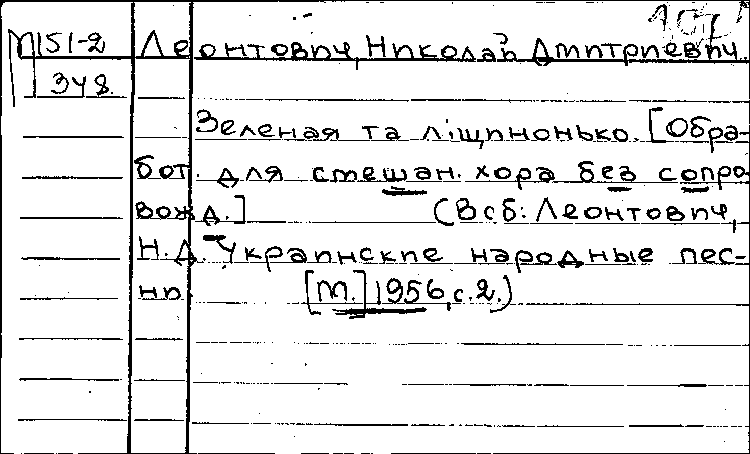 М151-2 Леонтович, Николай Дмитриевич.
348.
Зеленая та лiщинонько. [Обра-
бот. для смешан. хора без сопро
вожд.] (В сб: Леонтович,
Н.Д. Украинские народные пес-
ни. [М.] 1956, с. 2.)